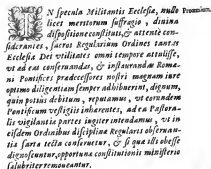 IN specula Militantis Ecclesiæ, nullo Proœmium.
licet meritorum suffragio, diuina
dispositione constituti, & attentè con-
siderantes, sacros Regularium Ordines tantæ
Ecclesiæ Dei vtilitates omni tempore attulisse,
vt ad eas conseruandas, & instaurandas Roma-
ni Pontifices prædecessores nostri magnam iure
optimo diligentiam semper adhibuerint, dignum,
quin potius debitum, reputamus, vt eorundem
Pontificum vestigijs inhærentes, ad ea Pastora-
lis vigilantiæ partes iugiter intendamus, vt in
eisdem Ordinibus disciplinæ Regularis obseruan-
tia sarta tecta conseruetur, & si qua illi obesse
dignoscuntur, opportuna constitutionis ministerio
salubriter remoueantur.